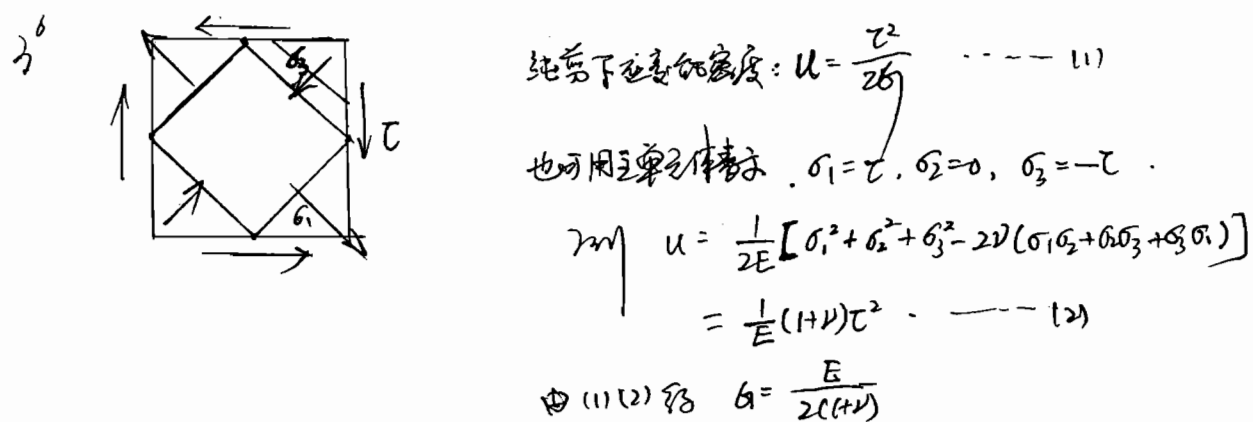 纯剪下应变能密度: u = τ²/2G ······ (1)
也可用主单元体表示. σ₁=τ, σ₂=0, σ₃=-τ.
则 u = 1/2E [σ₁²+σ₂²+σ₃²-2ν(σ₁σ₂+σ₂σ₃+σ₃σ₁)]
= 1/E (1+ν)τ² ······ (2)
由(1)(2)得 G = E/2(1+ν)
σ₃
τ
σ₁